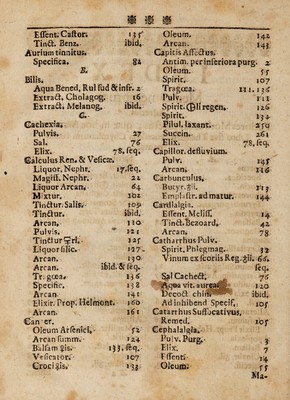 Essent. Castor. 135
Tinct. Benz. ibid.
Aurium tinnitus.
Specifica. 82
B.
Bilis.
Aqua Bened, Rul sud & insr. 2
Extract. Cholagog. 16
Extract. Melanog, ibid.
C.
Cachexia.
Pulvis. 27
Sal. 76
Elix. 78. seq.
Calculus Ren. & Vesicæ.
Liquor. Nephr. 17. seq.
Magist. Nephr. 22
Liquor Arcan. 64
Mixtur. 102
Tinctur. Salis. 109
Tinctur. ibid.
Arcan. 110
Pulvis. 121
Tinctur ♀rl. 125
Liquor silic. 127
Arcan. 130
Arcan. ibid. & seq.
Tragœa. 136
Specific. 138
Arcan. 141
Elixir. Prop. Helmont. 160
Arcan. 161
Cancer.
Oleum Arsenici. 52
Arcan summ. 124
Balsam ♁is. 133. seq.
Vesicator. 107
Croci ♁is. 133.
Oleum. 142
Arcan. 143
Capitis Affectus.
Antim. per inferiora purg. 2
Oleum. 55
Spirit. 107
Tragœa. 111. 136
Pulv. 111
Spirit. ⊕li regen. 126
Spirit. 134
Pilul. laxant. 250
Succin. 261
Elix. 78. seq.
Capillor. defluvium.
Pulv. 145
Arcan. 146
Carbunculus.
Butyr. ♁ii. 113
Emplastr. ad matur. 144
Cardialgia.
Essent. Meliss. 14
Tinct. Bezoard. 42
Arcan. 78
Catharrhus Pulv.
Spirit. Phlegmag. 32
Vinum ex scoriis Reg. ♁ii. 66.
seq.
Sal Cachect. 76
Aqua vit. aurea. 120
Decoct. chin. ibid.
Ad inhibend Specif. 105
Catarrhus Suffocativus,
Remed. 105
Cephalalgia.
Pulv. Purg. 3
Elix. 7
Essent. 14
Oleum. 55
Ma-